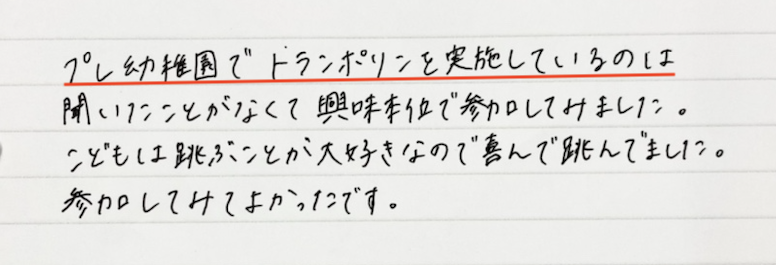 プレ幼稚園でトランポリンを実施しているのは
聞いたことがなくて興味本位で参加してみました。
こどもは跳ぶことが大好きなので喜んで跳んでました。
参加してみてよかったです。